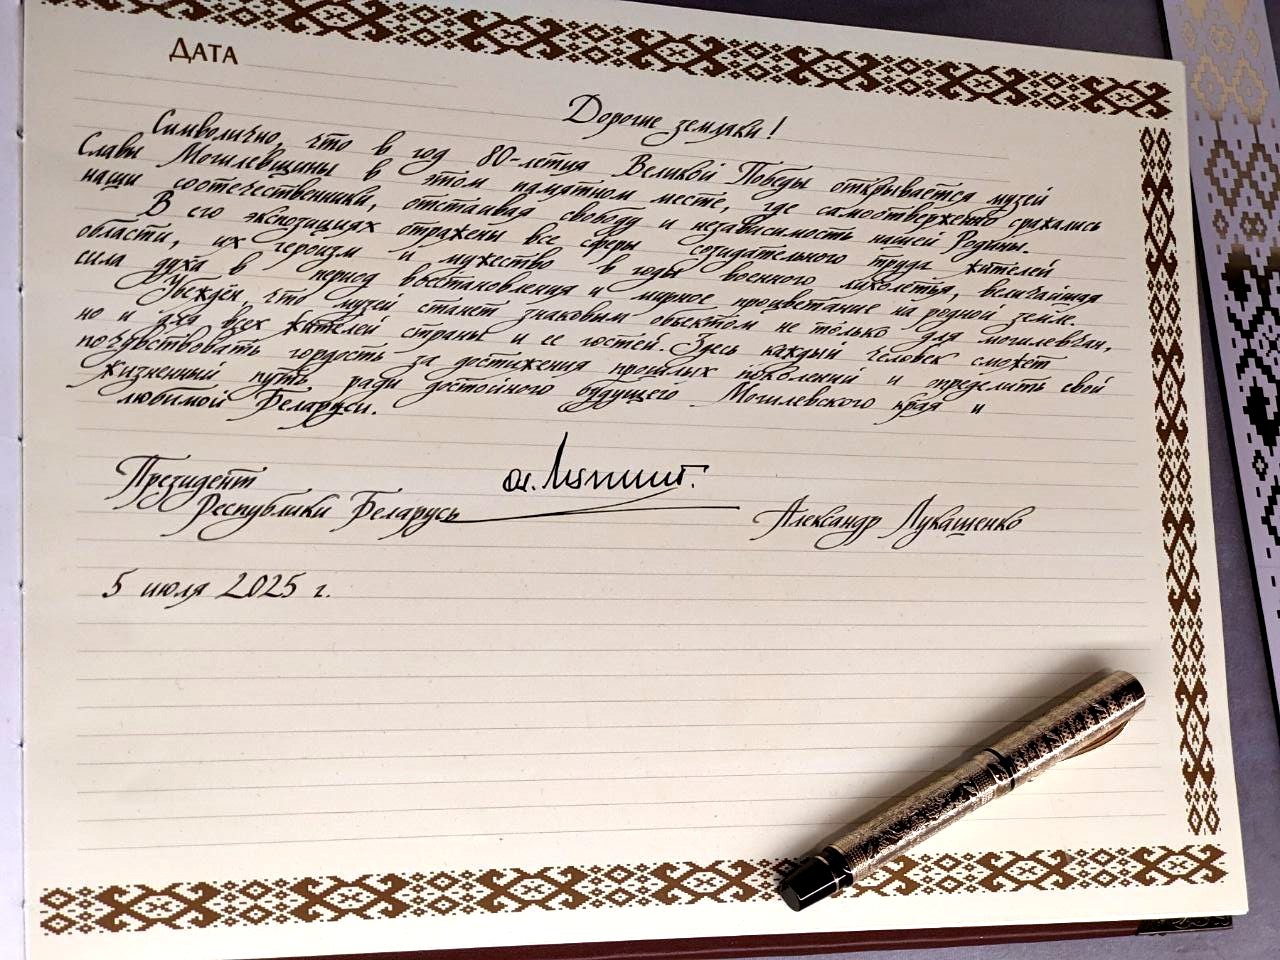 ДАТА
Дорогие земляки!
Символично, что в год 80-летия Великой Победы открывается музей
Славы Могилевщины в этом памятном месте, где самоотверженно сражались
наши соотечественники, отстаивая свободу и независимость нашей Родины.
В его экспозициях отражены все сферы созидательного труда жителей
области, их героизм и мужество в годы военного лихолетья, величайшая
сила духа в период восстановления и мирное процветание на родной земле.
Убеждён, что музей станет знаковым объектом не только для могилевчан,
но и для всех жителей страны и ее гостей. Здесь каждый человек сможет
почувствовать гордость за достижения прошлых поколений и определить свой
жизненный путь ради достойного будущего Могилевского края и
любимой Беларуси.
Президент
Республики Беларусь Александр Лукашенко
5 июля 2025 г.